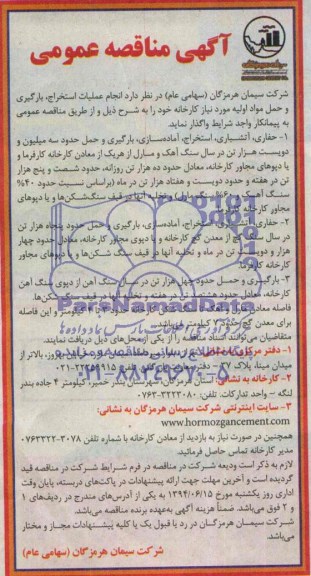 آگهی مناقصه عمومی
شرکت سیمان هرمزگان (سهامی عام) در نظر دارد انجام عملیات استخراج، بارگیری
و حمل مواد اولیه مورد نیاز کارخانه خود را به شرح ذیل و از طریق مناقصه عمومی
به پیمانکار واجد شرایط واگذار نماید.
۱- حفاری، آتشباری، استخراج، آماده‌سازی، بارگیری و حمل حدود سه میلیون و
دویست هزار تن در سال سنگ آهک و مارل از هریک از معادن کارخانه کارفرما و
یا دپوهای مجاور کارخانه، معادل حدود ده هزار تن روزانه، حدود شصت و پنج هزار
تن در هفته و حدود دویست و هفتاد هزار تن در ماه (براساس نسبت حدود ۴۰%
سنگ آهک و ۶۰% مارل) وتخلیه آنها در قیف سنگ‌شکن‌ها و یا دپوهای
مجاور کارخانه کارفرما.
۲- حفاری، آتشباری، استخراج، آماده‌سازی، بارگیری و حمل حدود پنجاه هزار تن
در سال سنگ گچ از معدن گچ کارخانه و یا دپوی مجاور کارخانه، معادل حدود چهار
هزار و دویست تن در ماه و تخلیه آنها در قیف سنگ شکن‌ها و یا دپوهای مجاور
کارخانه کارفرما.
۳- بارگیری و حمل حدود چهل هزار تن در سال سنگ آهن از دپوی سنگ آهن
کارخانه، معادل حدود هشتصد تن در هفته و تخلیه آنها در قیف سنگ‌شکن‌ها.
فاصله معادن
برای معدن گچ حدود ۷ کیلومتر می‌باشد.
متقاضیان می‌توانند اسناد مناقصه را از یکی از محل‌های ذیل دریافت نمایند.
۱- دفتر مرکزی
میدان مینا، پلاک
۲- کارخانه به نشانی: استان هرمزگان، شهرستان بندر خمیر، کیلومتر ۴ جاده بندر
لنگه - واحد تدارکات، تلفن: ۳۲۲۳۰۸۰-۰۷۶۳
۳- سایت اینترنتی شرکت سیمان هرمزگان به نشانی:
www.hormozgancement.com
همچنین در صورت نیاز به بازدید از معادن کارخانه با شماره تلفن ۳۰۷۸-۰۷۶۳۳۲۲
مدیر کارخانه تماس حاصل فرمائید.
لازم به ذکر است ودیعه شرکت در مناقصه در فرم شرایط شرکت در مناقصه قید
گردیده است و آخرین مهلت جهت ارائه پیشنهادات در پاکت‌های دربسته، پایان وقت
اداری روز یکشنبه مورخ ۱۳۹۴/۰۶/۱۵ به یکی از آدرس‌های مندرج در ردیف‌های ۱
و ۲ فوق می‌باشد. ضمناً هزینه آگهی به‌عهده برنده مناقصه می‌باشد.
شرکت سیمان هرمزگان در رد یا قبول یک یا کلیه پیشنهادات مجاز و مختار
می‌باشد.
شرکت سیمان هرمزگان (سهامی عام)
ParsNamadData
۰۲۱-۸۸۳۴۹۶۷۰-۵